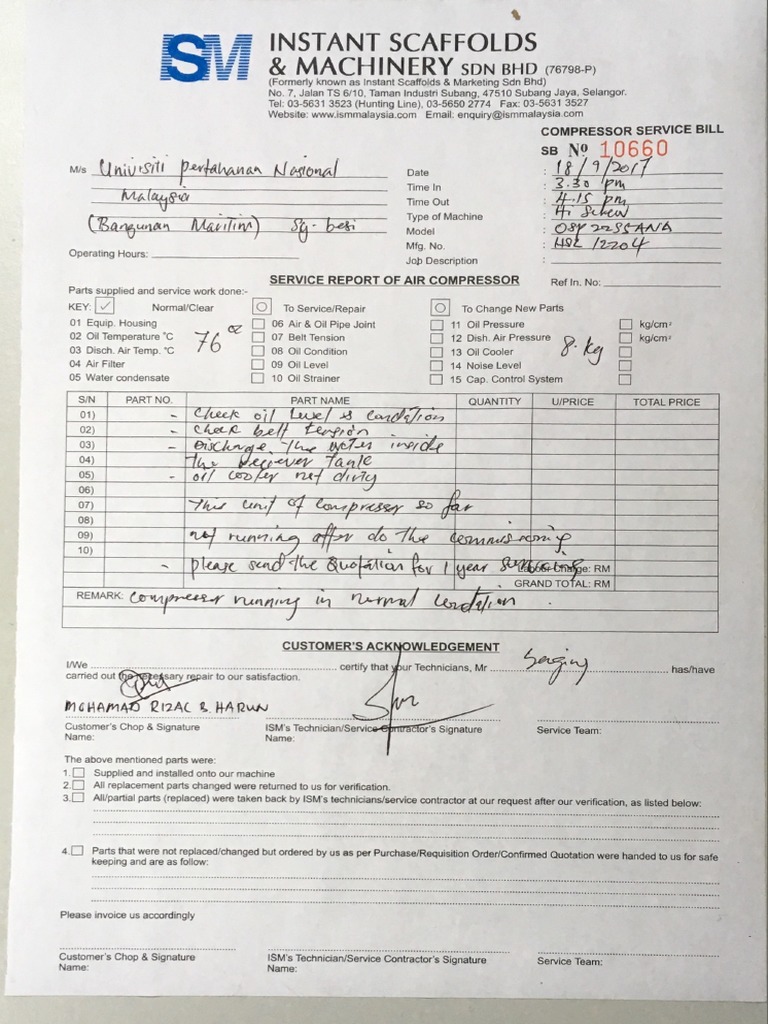 ISM INSTANT SCAFFOLDS
& MACHINERY SDN BHD (76798-P)
(Formerly known as Instant Scaffolds & Marketing Sdn Bhd)
No. 7, Jalan TS 6/10, Taman Industri Subang, 47510 Subang Jaya, Selangor.
Tel: 03-5631 3523 (Hunting Line), 03-5650 2774 Fax: 03-5631 3527
Website: www.ismmalaysia.com Email: enquiry@ismmalaysia.com
COMPRESSOR SERVICE BILL
SB Nº 10660
M/s Univisiti pertahanan Nasional
Malaysia
(Bangunan Maritim) Sg-besi
Operating Hours:
Date : 18/9/2017
Time In : 3.30 pm
Time Out : 4.15 pm
Type of Machine : Hi Screw
Model :
Mfg. No. : 12204
Job Description :
SERVICE REPORT OF AIR COMPRESSOR
Ref In. No:
Parts supplied and service work done:-
KEY: ✓ Normal/Clear O To Service/Repair O To Change New Parts
01 Equip. Housing 06 Air & Oil Pipe Joint 11 Oil Pressure kg/cm²
02 Oil Temperature °C 76 07 Belt Tension 12 Dish. Air Pressure 8.kg kg/cm²
03 Disch. Air Temp. °C 08 Oil Condition 13 Oil Cooler
04 Air Filter 09 Oil Level 14 Noise Level
05 Water condensate 10 Oil Strainer 15 Cap. Control System
S/N PART NO. PART NAME QUANTITY U/PRICE TOTAL PRICE
01) - check oil level & condation
02) - check belt tension
03) - Discharge the water inside
04) the reciever tank
05) - oil cooler not dirty
06)
07) This unit of compressor so far
08)
09) not running after do the commissioning
10)
- please send the Quotation for 1 year servicing
Labour Charge: RM
GRAND TOTAL: RM
REMARK: compressor running in normal condation.
CUSTOMER'S ACKNOWLEDGEMENT
I/We certify that your Technicians, Mr has/have
carried out the necessary repair to our satisfaction.
MOHAMAD RIZAL B. HARUN
Customer's Chop & Signature ISM's Technician/Service Contractor's Signature Service Team:
Name: Name:
The above mentioned parts were:
1. Supplied and installed onto our machine
2. All replacement parts changed were returned to us for verification.
3. All/partial parts (replaced) were taken back by ISM's technicians/service contractor at our request after our verification, as listed below:
4. Parts that were not replaced/changed but ordered by us as per Purchase/Requisition Order/Confirmed Quotation were handed to us for safe
keeping and are as follow:
Please invoice us accordingly
Customer's Chop & Signature ISM's Technician/Service Contractor's Signature Service Team:
Name: Name: